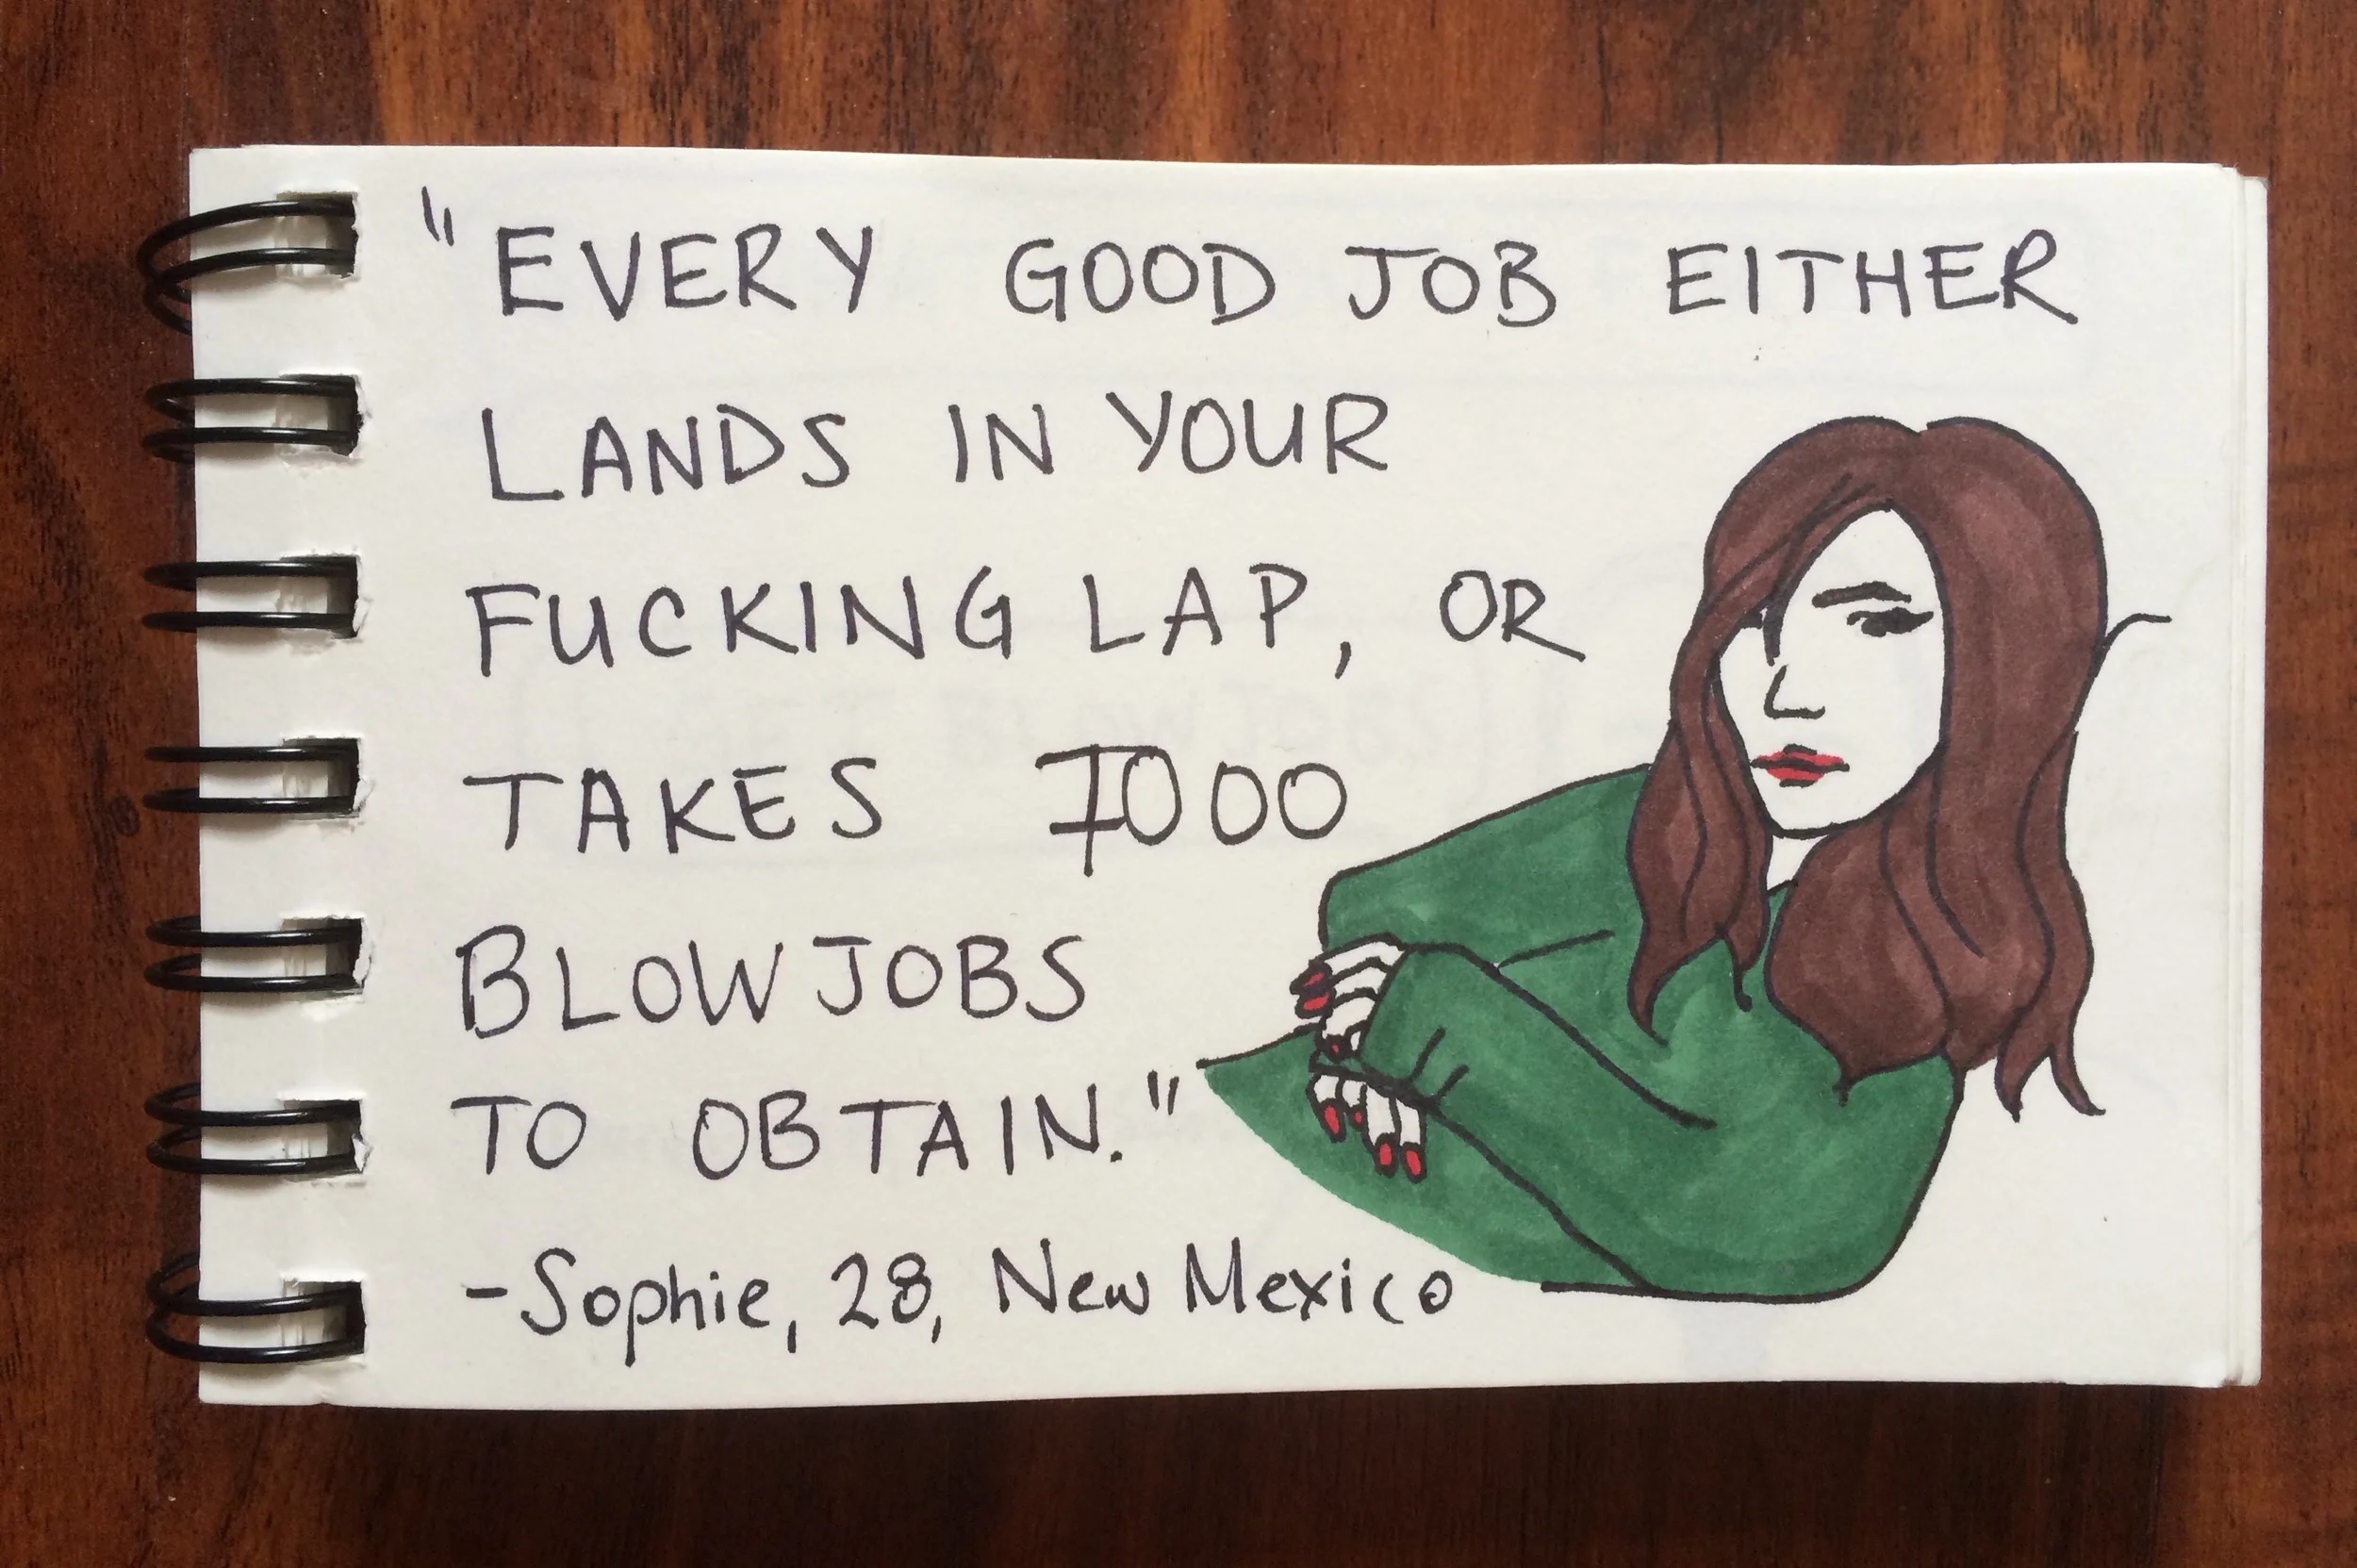 "EVERY GOOD JOB EITHER
LANDS IN YOUR
FUCKING LAP, OR
TAKES 1000
BLOWJOBS
TO OBTAIN."
-Sophie, 28, New Mexico